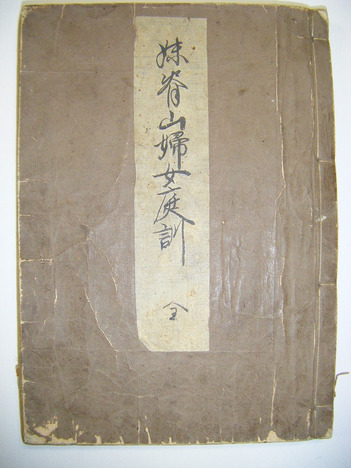 妹脊山婦女庭訓
全